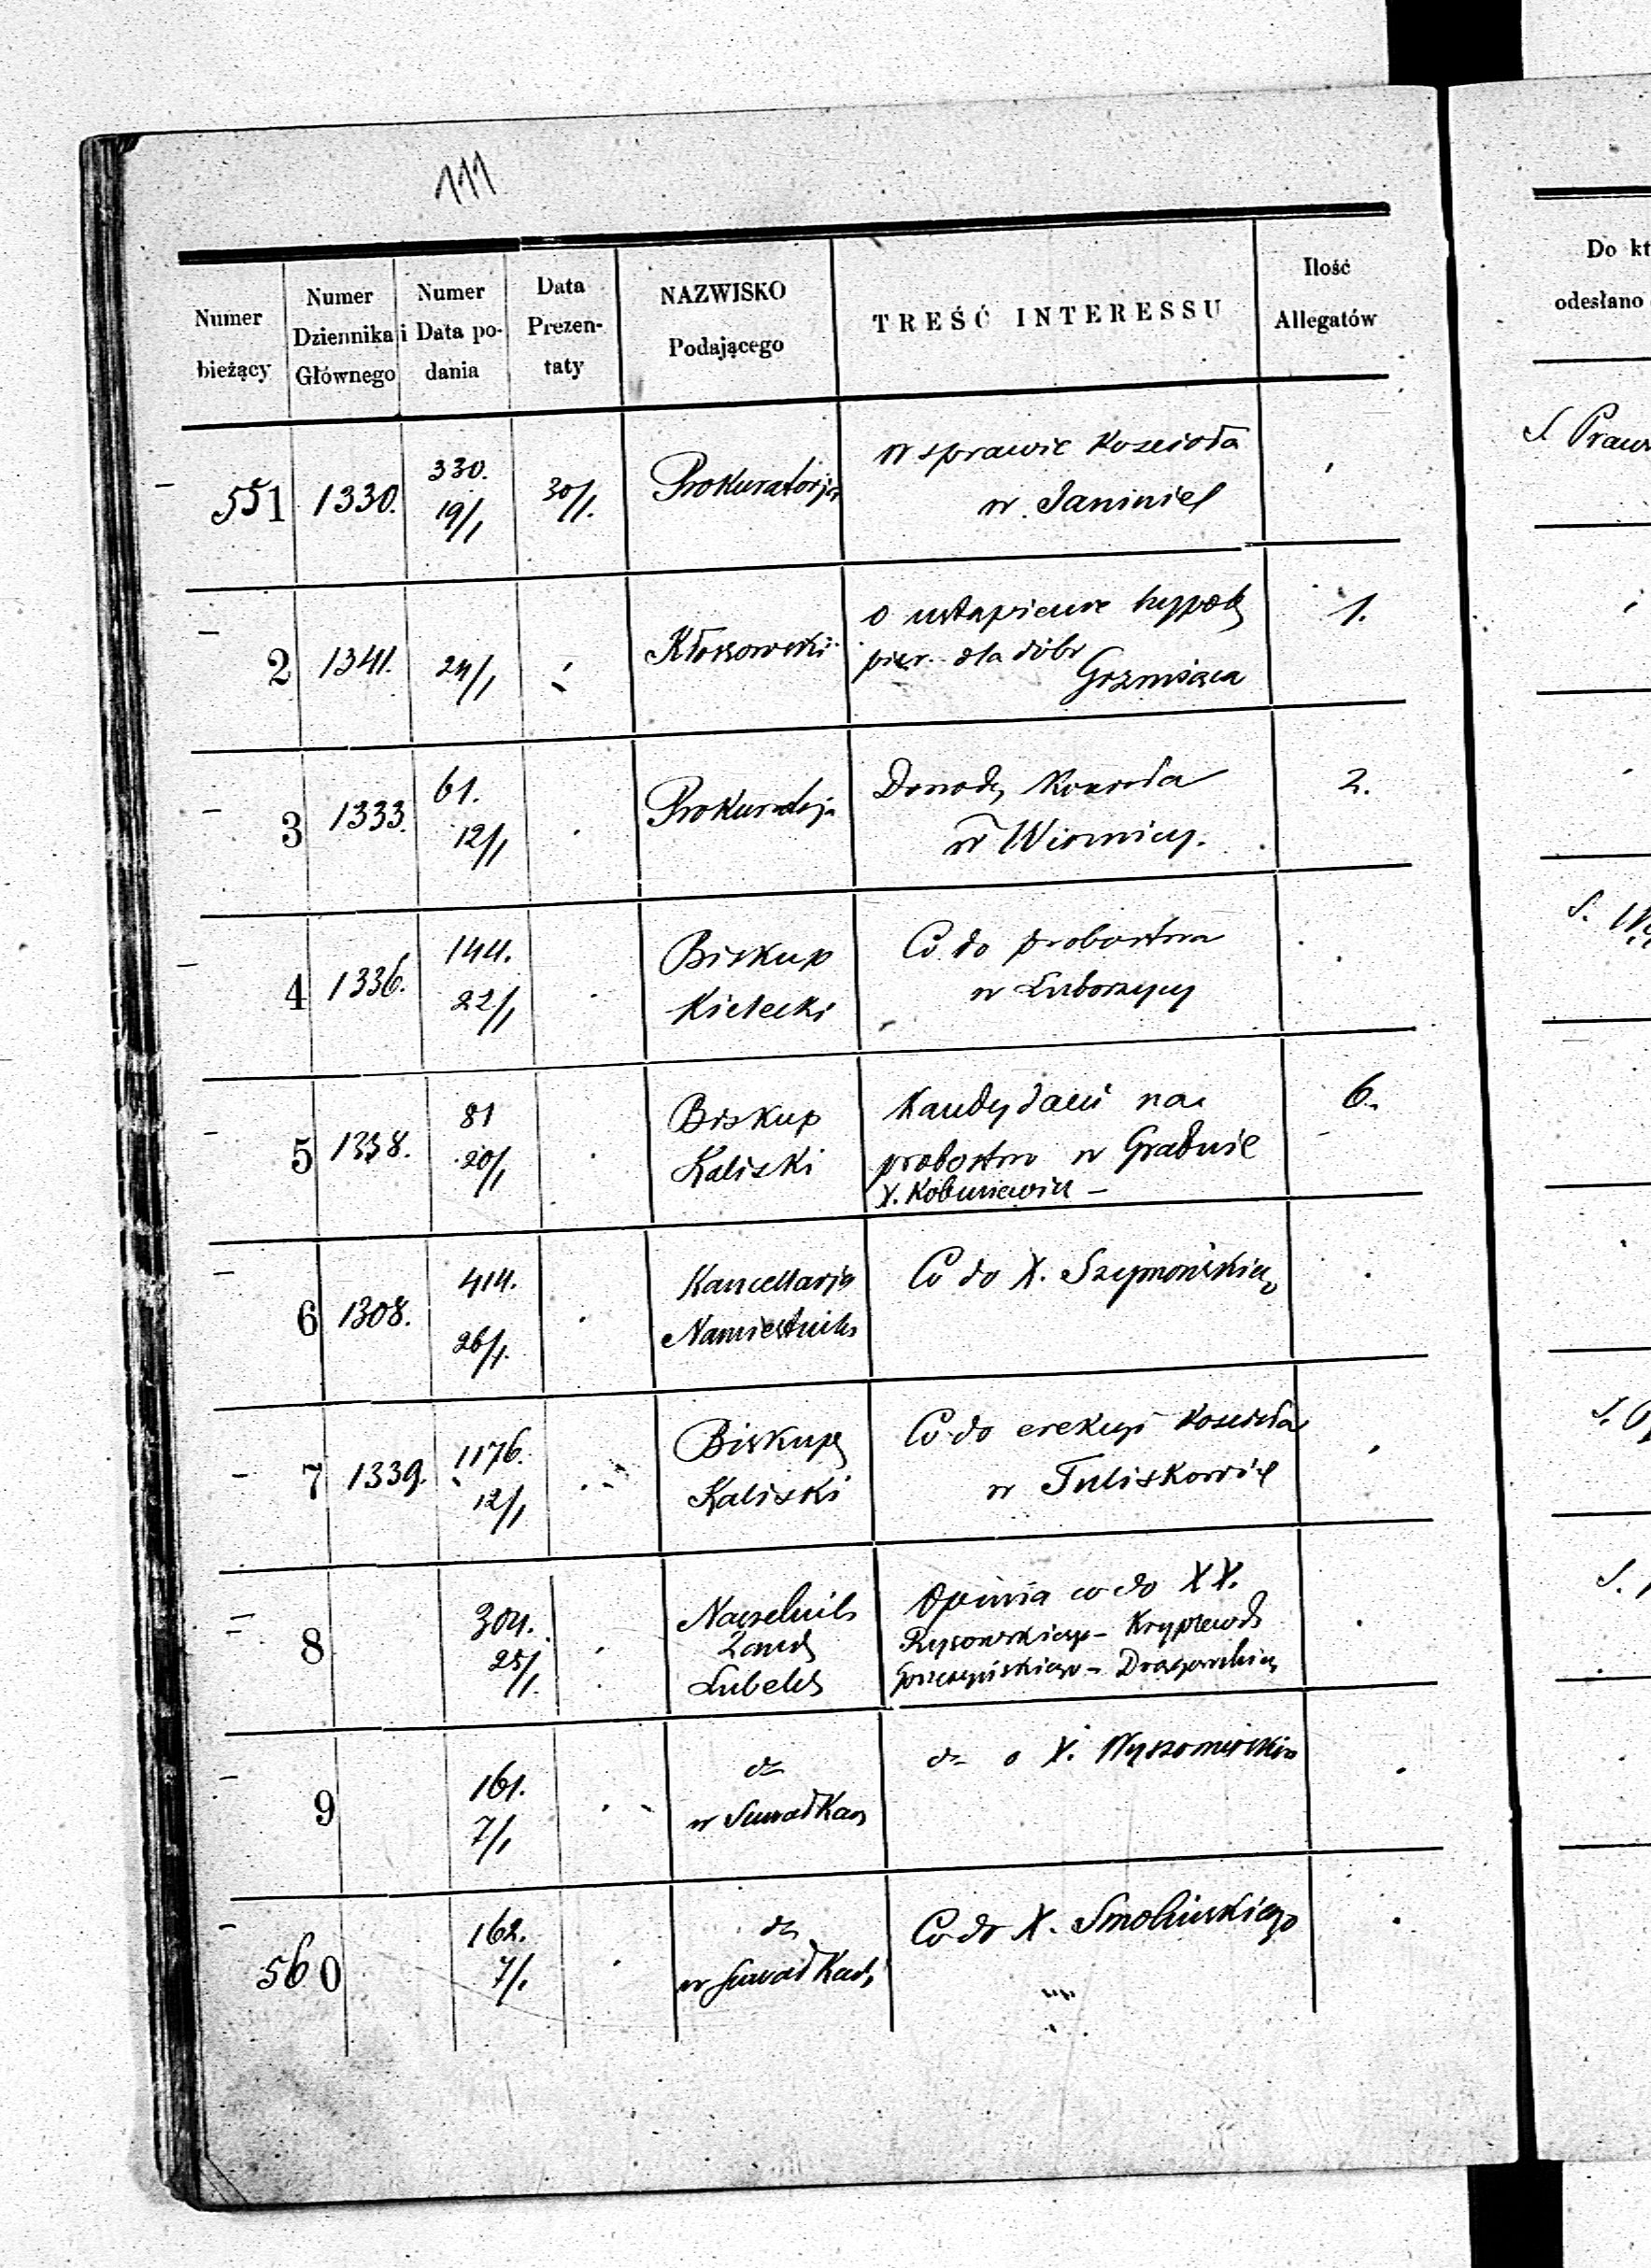 111
Numer bieżący
Numer Dziennika Głównego
Numer i Data podania
Data Prezentaty
NAZWISKO Podającego
TREŚĆ INTERESSU
Ilość Allegatów
551 1330. 330. 19/1 30/1. Prokuratorja
W sprawie Kościoła
w Janiniel
2 1341. 24/1 Kłossowski
o ustąpienie hypot
pier. dla dóbr
Grzmiąca
1.
3 1333. 61. 12/1 Prokuratorja
Dowody Kościoła
w
2.
4 1336. 144. 22/1
Biskup
Kielecki
Co do probostwa
w Luborzycy
5 1338. 81 20/1
Biskup
Kaliski
Kandydaci na
probostwo w Grabnie
X.
6.
6 1308. 414. 26/1.
Kancellarja
Namiestnika
Co do X. Szymońskiego
7 1339. 1176. 12/1
Biskup
Kaliski
Co do erekcji Kościoła
w Tuliskowie
8 304. 25/1.
Naczelnik
Żand
Lubels
Opinia co do XX.
9 161. 7/1
do
w Suwałkach
do o X. Wyszomirskim
560 162. 7/1.
do
w Suwałkach
Co do X. Smolińskiego
Do kt
odesłano
S. Praw